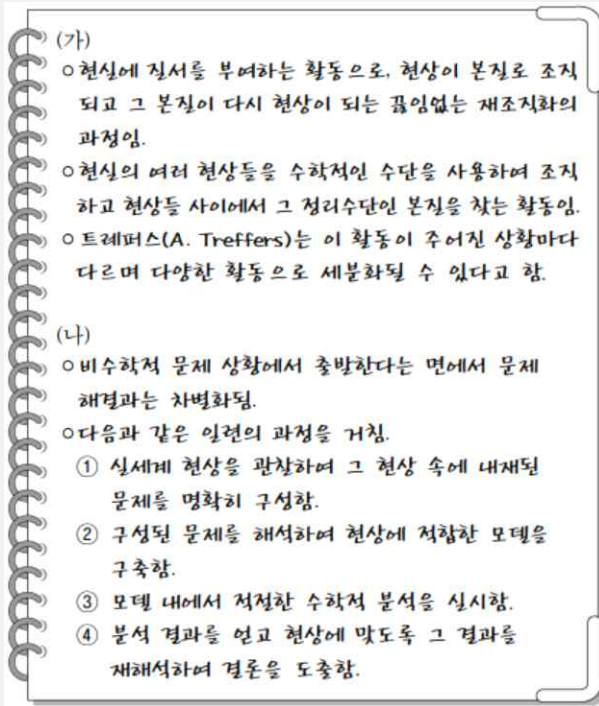 (가)
○현실에 질서를 부여하는 활동으로, 현상이 본질로 조직
되고 그 본질이 다시 현상이 되는 끊임없는 재조직화의
과정임.
○현실의 여러 현상들을 수학적인 수단을 사용하여 조직
하고 현상들 사이에서 그 정리수단인 본질을 찾는 활동임.
○트레퍼스(A. Treffers)는 이 활동이 주어진 상황마다
다르며 다양한 활동으로 세분화될 수 있다고 함.
(나)
○비수학적 문제 상황에서 출발한다는 면에서 문제
해결과는 차별화됨.
○다음과 같은 일련의 과정을 거침.
① 실세계 현상을 관찰하여 그 현상 속에 내재된
문제를 명확히 구성함.
② 구성된 문제를 해석하여 현상에 적합한 모델을
구축함.
③ 모델 내에서 적절한 수학적 분석을 실시함.
④ 분석 결과를 얻고 현상에 맞도록 그 결과를
재해석하여 결론을 도출함.